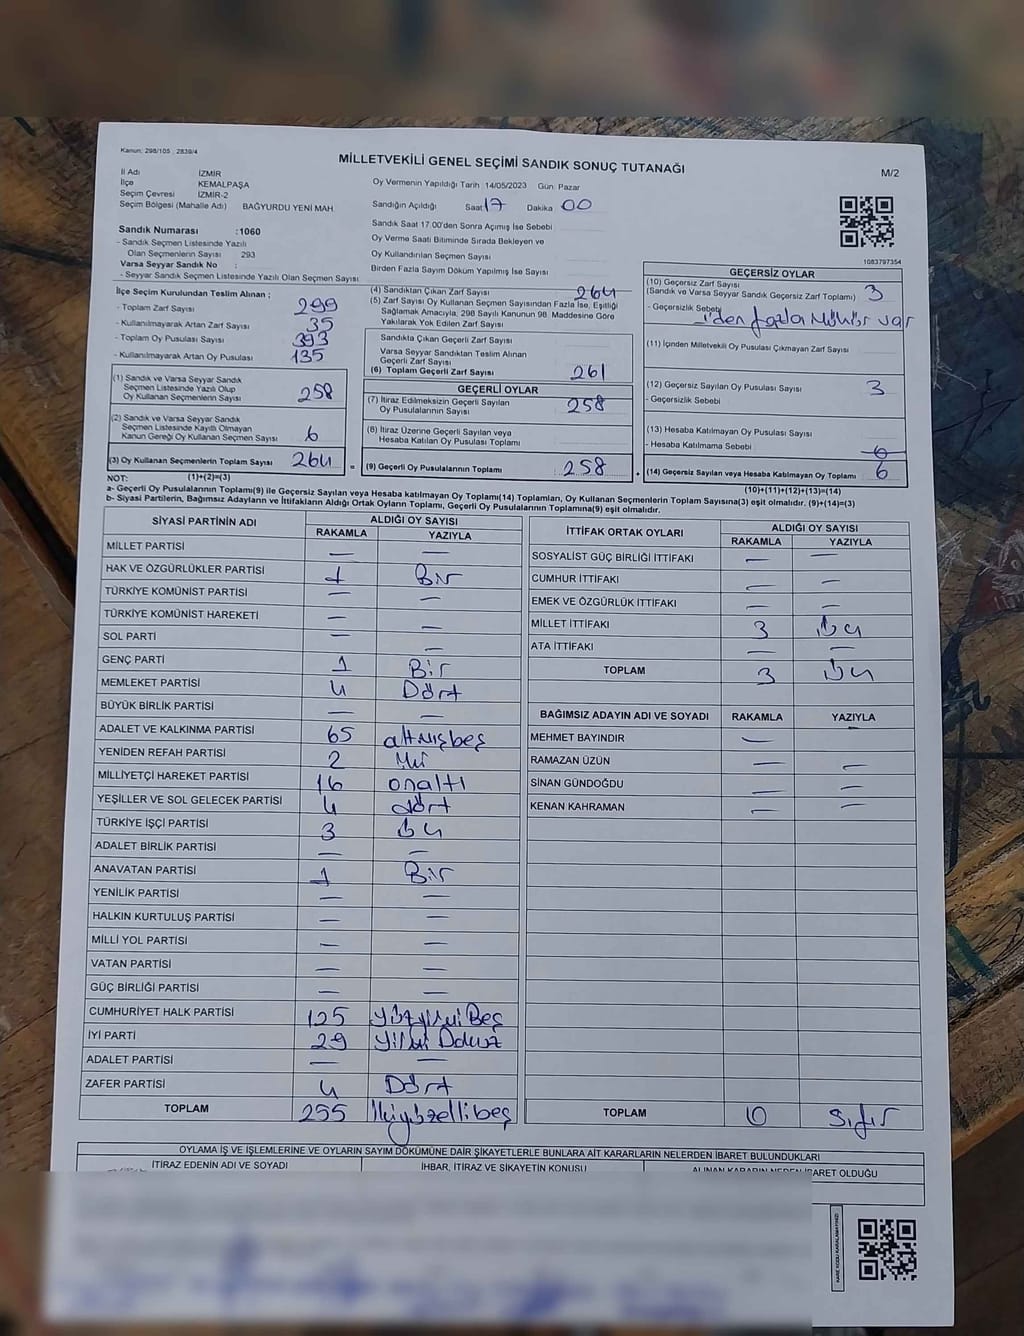 Kanun: 298/105 2839/4
MİLLETVEKİLİ GENEL SEÇİMİ SANDIK SONUÇ TUTANAĞI
M/2
İl Adı İZMİR
İlçe KEMALPAŞA
Seçim Çevresi İZMİR-2
Seçim Bölgesi (Mahalle Adı) BAĞYURDU YENİ MAH
Oy Vermenin Yapıldığı Tarih 14/05/2023 Gün: Pazar
Sandığın Açıldığı Saat 17 Dakika 00
Sandık Saat 17:00'den Sonra Açılmış İse Sebebi
Oy Verme Saati Bitiminde Sırada Bekleyen ve
Oy Kullandırılan Seçmen Sayısı
Birden Fazla Sayım Döküm Yapılmış İse Sayısı
1083797354
Sandık Numarası :1060
- Sandık Seçmen Listesinde Yazılı
Olan Seçmenlerin Sayısı 293
Varsa Seyyar Sandık No :
- Seyyar Sandık Seçmen Listesinde Yazılı Olan Seçmen Sayısı
İlçe Seçim Kurulundan Teslim Alınan ;
- Toplam Zarf Sayısı 299
- Kullanılmayarak Artan Zarf Sayısı 35
- Toplam Oy Pusulası Sayısı 393
- Kullanılmayarak Artan Oy Pusulası 135
(1) Sandık ve Varsa Seyyar Sandık
Seçmen Listesinde Yazılı Olup
Oy Kullanan Seçmenlerin Sayısı 258
(2) Sandık ve Varsa Seyyar Sandık
Seçmen Listesinde Kayıtlı Olmayan
Kanun Gereği Oy Kullanan Seçmen Sayısı 6
(3) Oy Kullanan Seçmenlerin Toplam Sayısı 264
(4) Sandıktan Çıkan Zarf Sayısı 264
(5) Zarf Sayısı Oy Kullanan Seçmen Sayısından Fazla İse, Eşitliği
Sağlamak Amacıyla, 298 Sayılı Kanunun 98. Maddesine Göre
Yakılarak Yok Edilen Zarf Sayısı
Sandıkta Çıkan Geçerli Zarf Sayısı
Varsa Seyyar Sandıktan Teslim Alınan
Geçerli Zarf Sayısı
(6) Toplam Geçerli Zarf Sayısı 261
GEÇERLİ OYLAR
(7) İtiraz Edilmeksizin Geçerli Sayılan
Oy Pusulalarının Sayısı 258
(8) İtiraz Üzerine Geçerli Sayılan veya
Hesaba Katılan Oy Pusulası Toplamı
= (9) Geçerli Oy Pusulalarının Toplamı 258
GEÇERSİZ OYLAR
(10) Geçersiz Zarf Sayısı 3
(Sandık ve Varsa Seyyar Sandık Geçersiz Zarf Toplamı)
- Geçersizlik Sebebi 1'den fazla Mühür var
(11) İçinden Milletvekili Oy Pusulası Çıkmayan Zarf Sayısı
(12) Geçersiz Sayılan Oy Pusulası Sayısı 3
- Geçersizlik Sebebi
(13) Hesaba Katılmayan Oy Pusulası Sayısı
- Hesaba Katılmama Sebebi
(14) Geçersiz Sayılan veya Hesaba Katılmayan Oy Toplamı 6
NOT: (1)+(2)=(3) (10)+(11)+(12)+(13)=(14)
a- Geçerli Oy Pusulalarının Toplamı(9) ile Geçersiz Sayılan veya Hesaba katılmayan Oy Toplamı(14) Toplamları, Oy Kullanan Seçmenlerin Toplam Sayısına(3) eşit olmalıdır. (9)+(14)=(3)
b- Siyasi Partilerin, Bağımsız Adayların ve İttifakların Aldığı Ortak Oyların Toplamı, Geçerli Oy Pusulalarının Toplamına(9) eşit olmalıdır.
SİYASİ PARTİNİN ADI ALDIĞI OY SAYISI
RAKAMLA YAZIYLA
MİLLET PARTİSİ — —
HAK VE ÖZGÜRLÜKLER PARTİSİ 1 Bir
TÜRKİYE KOMÜNİST PARTİSİ — —
TÜRKİYE KOMÜNİST HAREKETİ — —
SOL PARTİ — —
GENÇ PARTİ 1 Bir
MEMLEKET PARTİSİ 4 Dört
BÜYÜK BİRLİK PARTİSİ — —
ADALET VE KALKINMA PARTİSİ 65 altmışbeş
YENİDEN REFAH PARTİSİ 2 iki
MİLLİYETÇİ HAREKET PARTİSİ 16 onaltı
YEŞİLLER VE SOL GELECEK PARTİSİ 4 dört
TÜRKİYE İŞÇİ PARTİSİ 3 üç
ADALET BİRLİK PARTİSİ — —
ANAVATAN PARTİSİ 1 Bir
YENİLİK PARTİSİ — —
HALKIN KURTULUŞ PARTİSİ — —
MİLLİ YOL PARTİSİ — —
VATAN PARTİSİ — —
GÜÇ BİRLİĞİ PARTİSİ — —
CUMHURİYET HALK PARTİSİ 125 YüzyirmiBeş
İYİ PARTİ 29 Yirmi Dokuz
ADALET PARTİSİ — —
ZAFER PARTİSİ 4 Dört
TOPLAM 255 İkiyüzellibeş
İTTİFAK ORTAK OYLARI ALDIĞI OY SAYISI
RAKAMLA YAZIYLA
SOSYALİST GÜÇ BİRLİĞİ İTTİFAKI — —
CUMHUR İTTİFAKI — —
EMEK VE ÖZGÜRLÜK İTTİFAKI — —
MİLLET İTTİFAKI 3 üç
ATA İTTİFAKI — —
TOPLAM 3 üç
BAĞIMSIZ ADAYIN ADI VE SOYADI RAKAMLA YAZIYLA
MEHMET BAYINDIR —
RAMAZAN ÜZÜN — —
SİNAN GÜNDOĞDU — —
KENAN KAHRAMAN — —
TOPLAM Sıfır
OYLAMA İŞ VE İŞLEMLERİNE VE OYLARIN SAYIM DÖKÜMÜNE DAİR ŞİKAYETLERLE BUNLARA AİT KARARLARIN NELERDEN İBARET BULUNDUKLARI
İTİRAZ EDENİN ADI VE SOYADI İHBAR, İTİRAZ VE ŞİKAYETİN KONUSU ALINAN KARARIN NEDEN İBARET OLDUĞU
KARE KODU KARALAMAYINIZ!